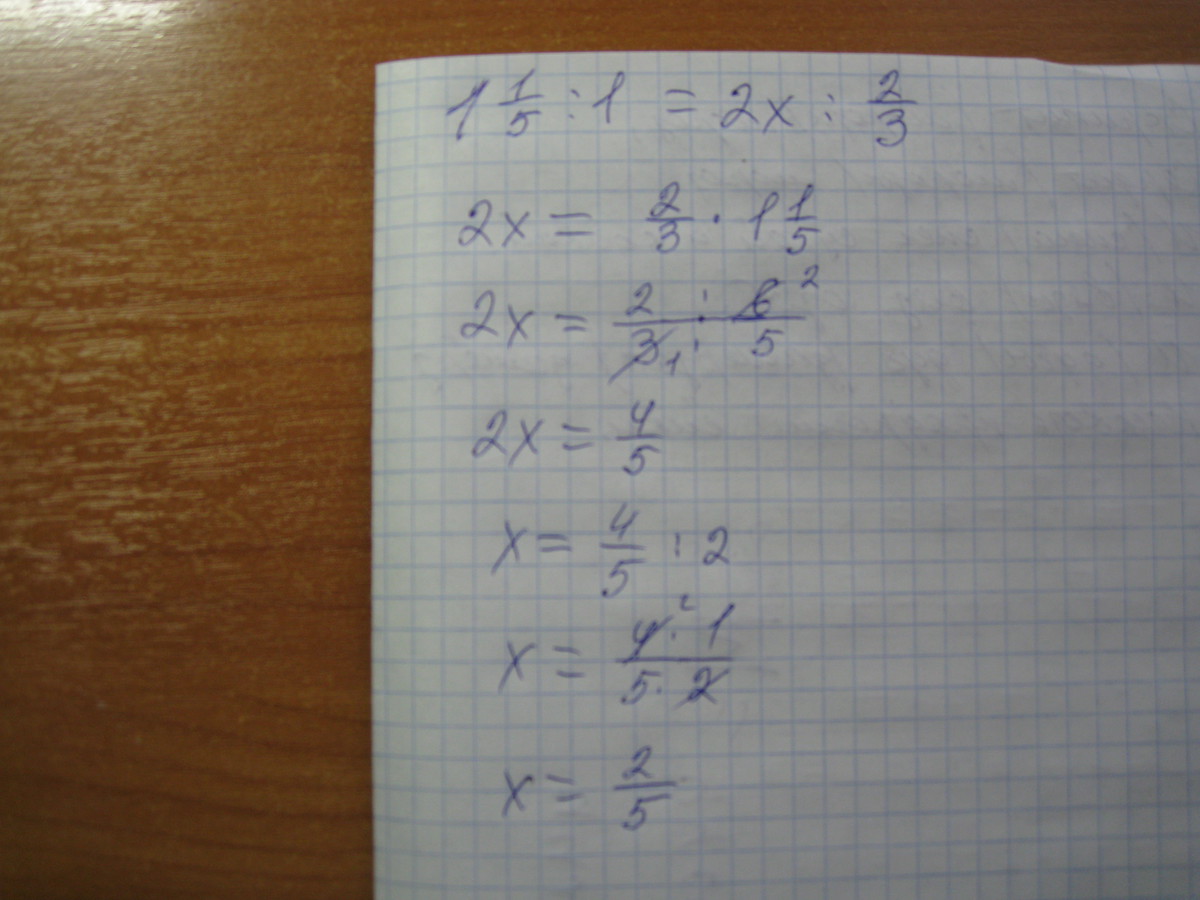 1 1/5 : 1 = 2x : 2/3
2x = 2/3 · 1 1/5
2x = 2 : 6 2 / 3 1 : 5
2x = 4/5
x = 4/5 : 2
x = 4 2 · 1 / 5 · 2
x = 2/5